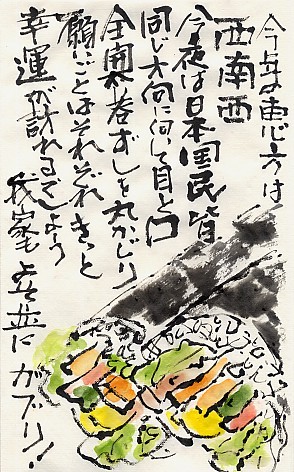 今年の恵方は
西南西
今夜は日本国民皆
同じ方向に向って目と口
全開太巻ずしを丸かじり
願いごとはそれぞれきっと
幸運が訪れるでしょう
我家も 共に ガブリ!